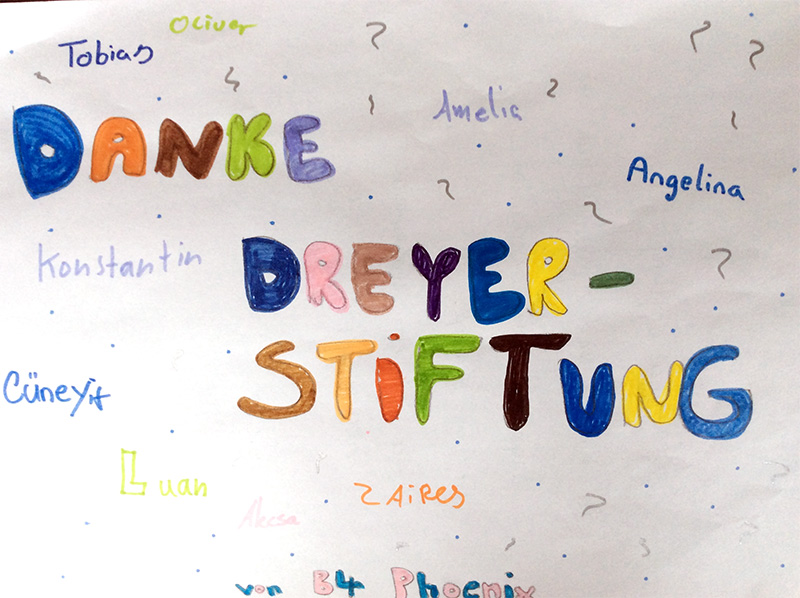 Oliver
Tobias
Amelia
DANKE
Angelina
Konstantin
DREYER-
STiFTUNG
Cüneyit
Luan
ZAiRES
von B4 Phoenix